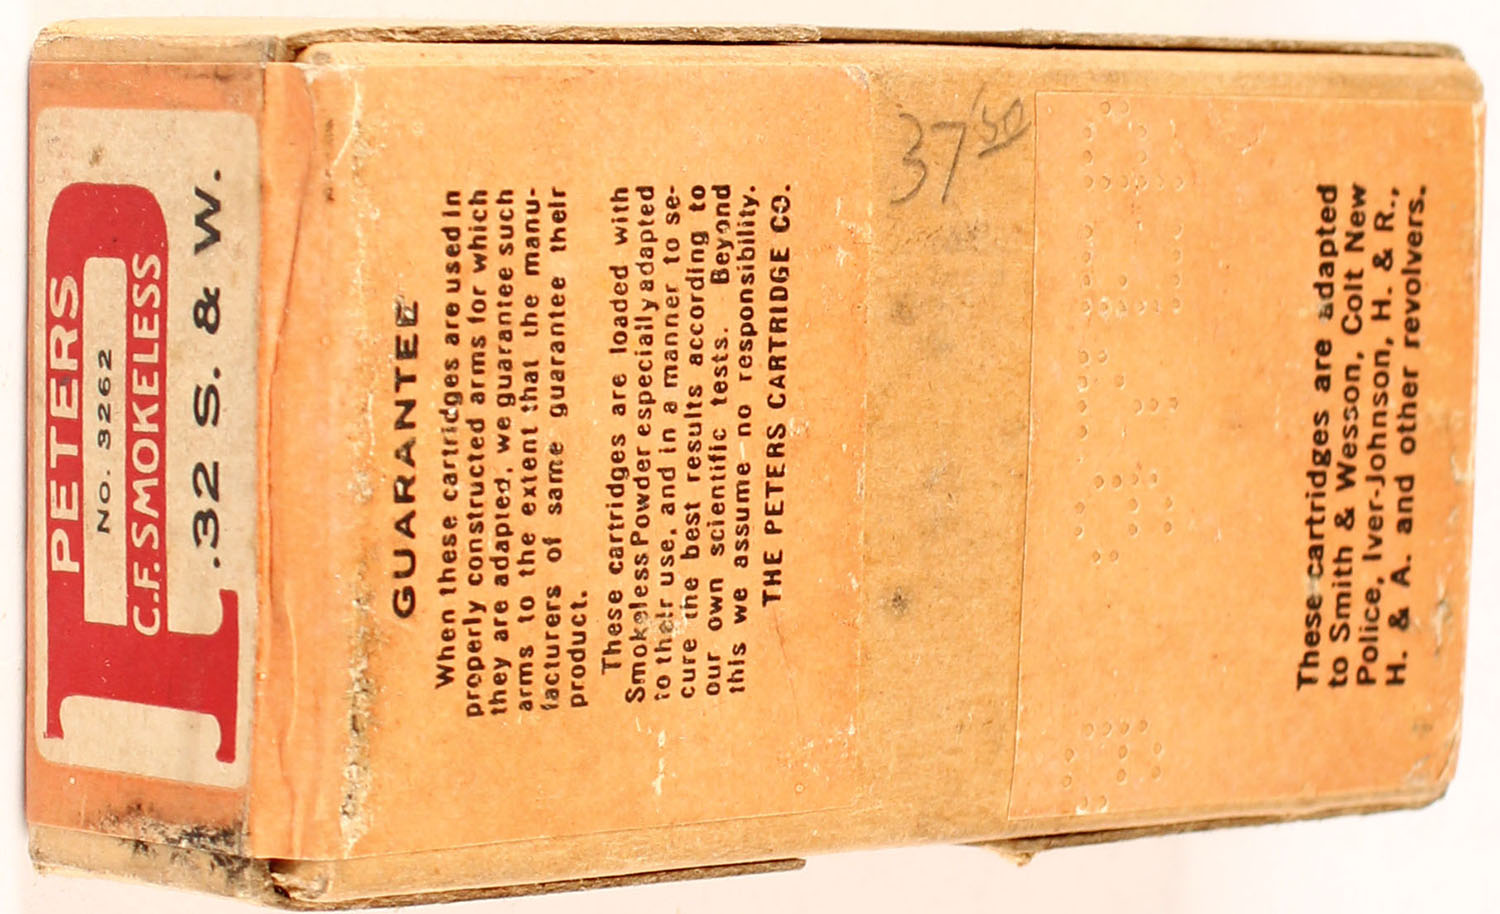 PETERS
NO. 3262
C.F. SMOKELESS
.32 S. & W.
GUARANTEE
When these cartridges are used in
properly constructed arms for which
they are adapted, we guarantee such
arms to the extent that the manu-
facturers of same guarantee their
product.
These cartridges are loaded with
Smokeless Powder especially adapted
to their use, and in a manner to se-
cure the best results according to
our own scientific tests. Beyond
this we assume no responsibility.
THE PETERS CARTRIDGE CO.
37.50
These cartridges are adapted
to Smith & Wesson, Colt New
Police, Iver-Johnson, H. & R.,
H. & A. and other revolvers.